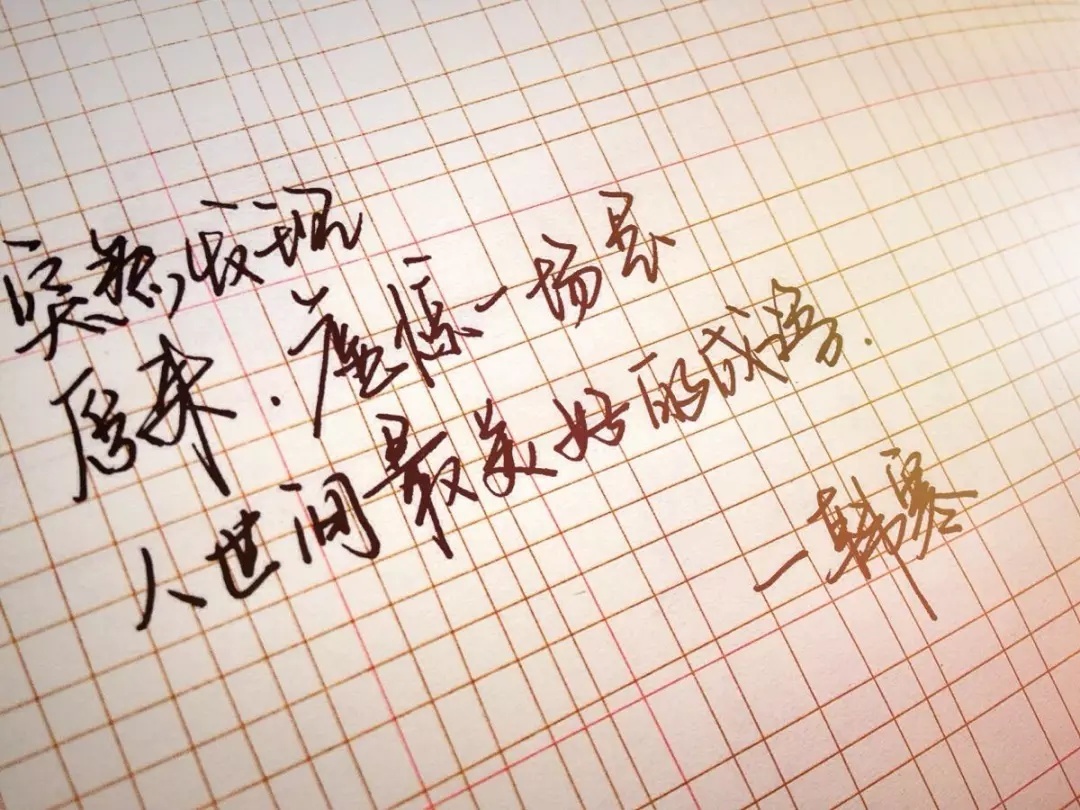 突然发现
原来.虚惊一场是
人世间最美好的成语.
一韩寒